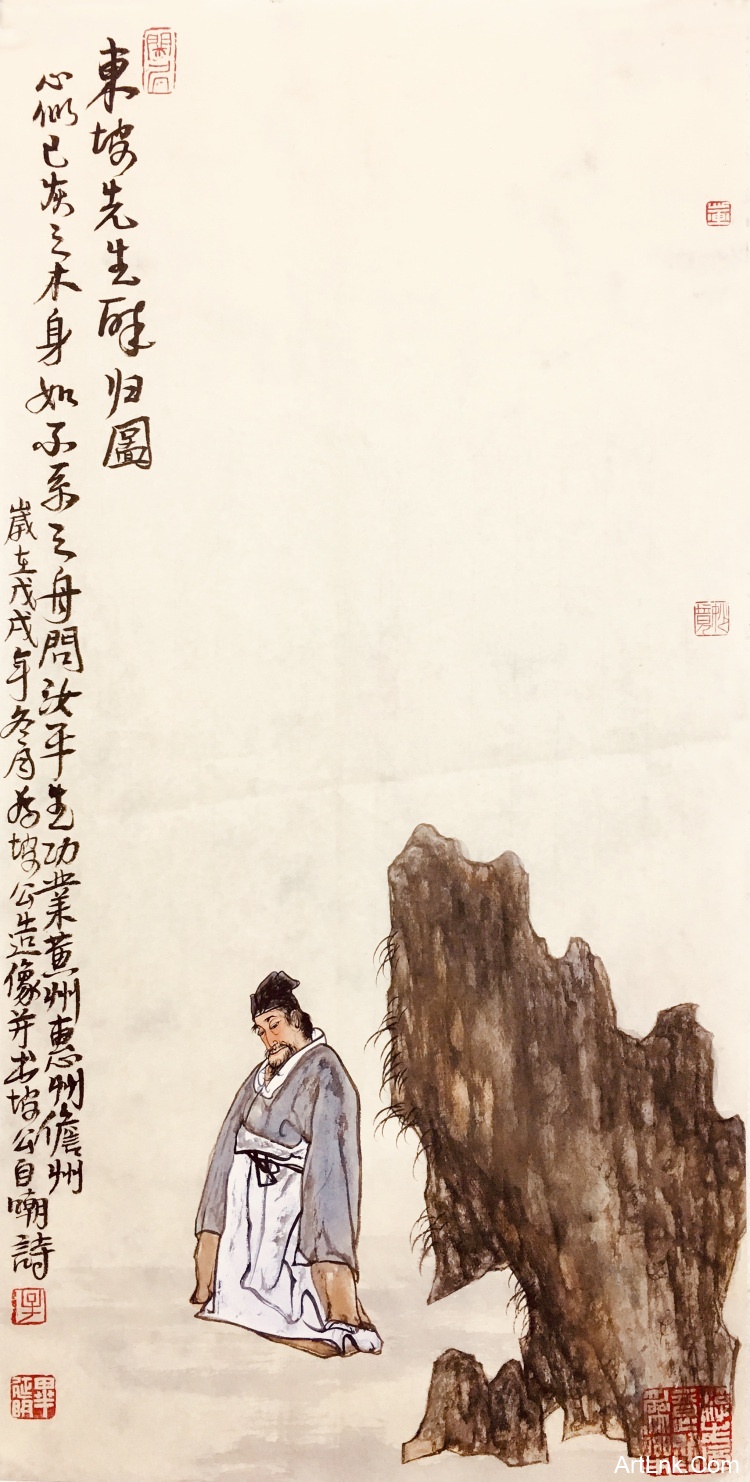 東坡先生醉归圖
心似已灰之木身如不系之舟問汝平生功業黄州惠州儋州
歲在戊戌年冬月为坡公造像并书坡公自嘲詩
ArtLnk.Com